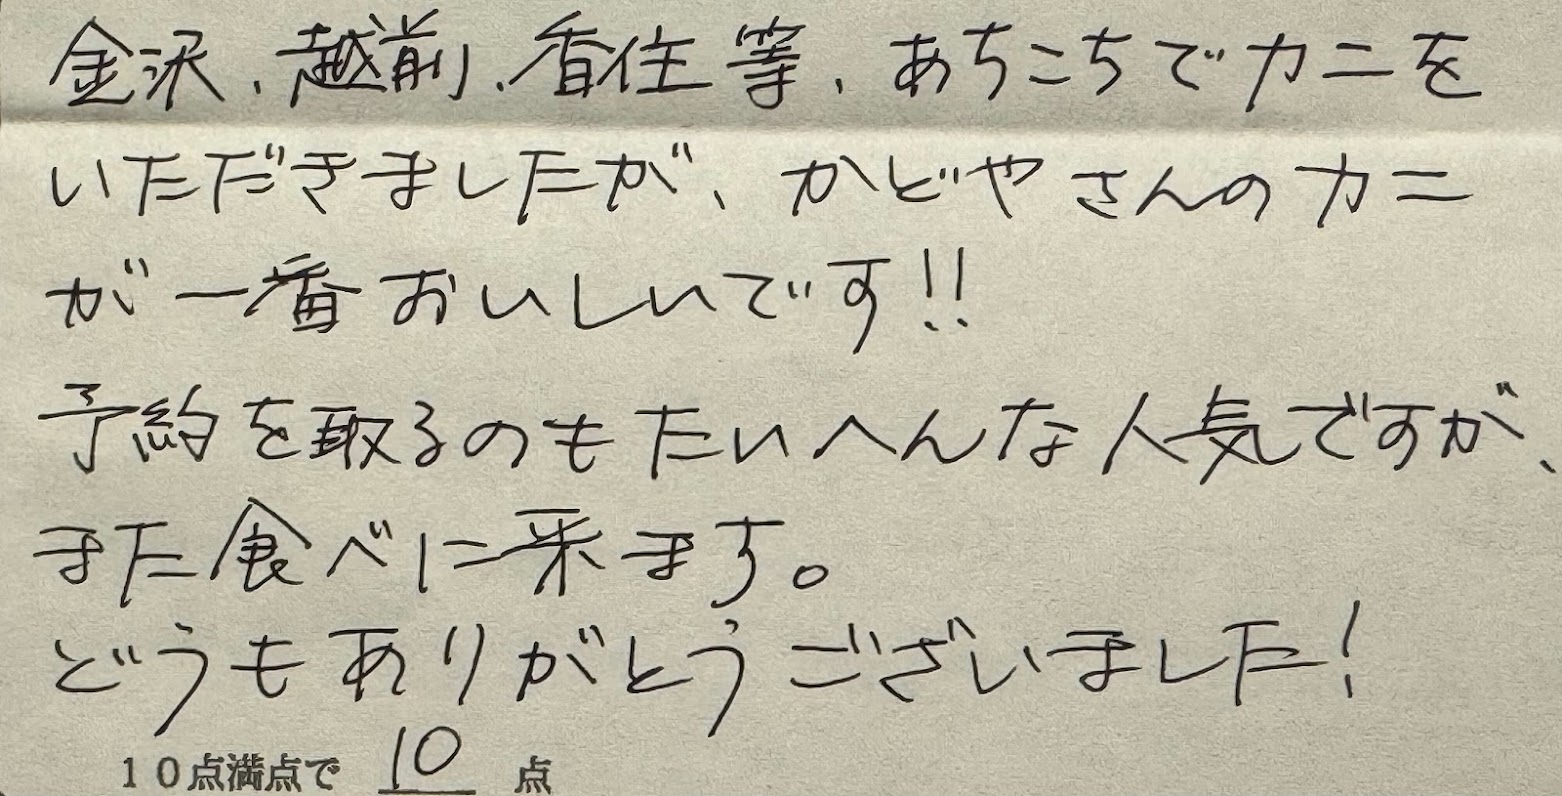 金沢、越前、香住等、あちこちでカニを
いただきましたが、かどやさんのカニ
が一番おいしいです!!
予約を取るのもたいへんな人気ですが、
また食べに来ます。
どうもありがとうございました!
10点満点で 10 点